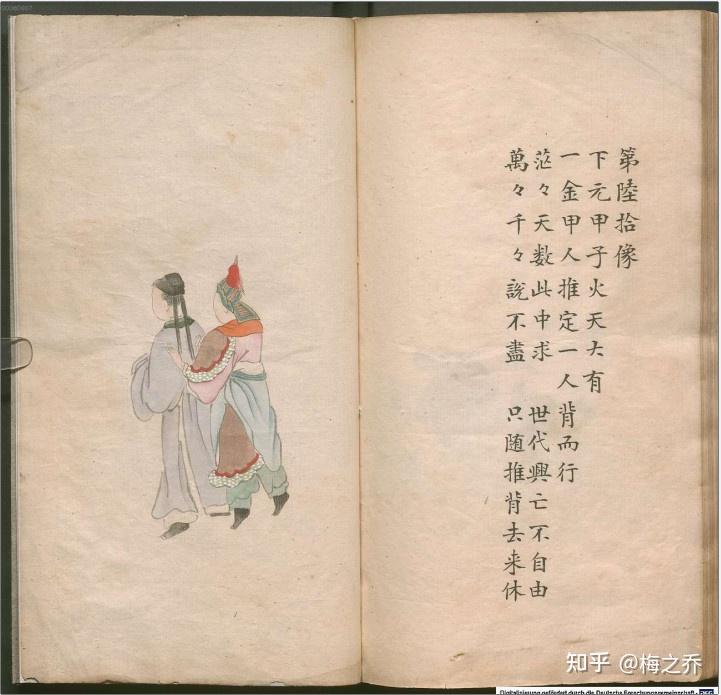 第陸拾像
下元甲子火天大有
一金甲人推定一人背而行
茫々天数此中求 世代興亡不自由
萬々千々說不盡 只随推背去来休
知乎 @梅之乔